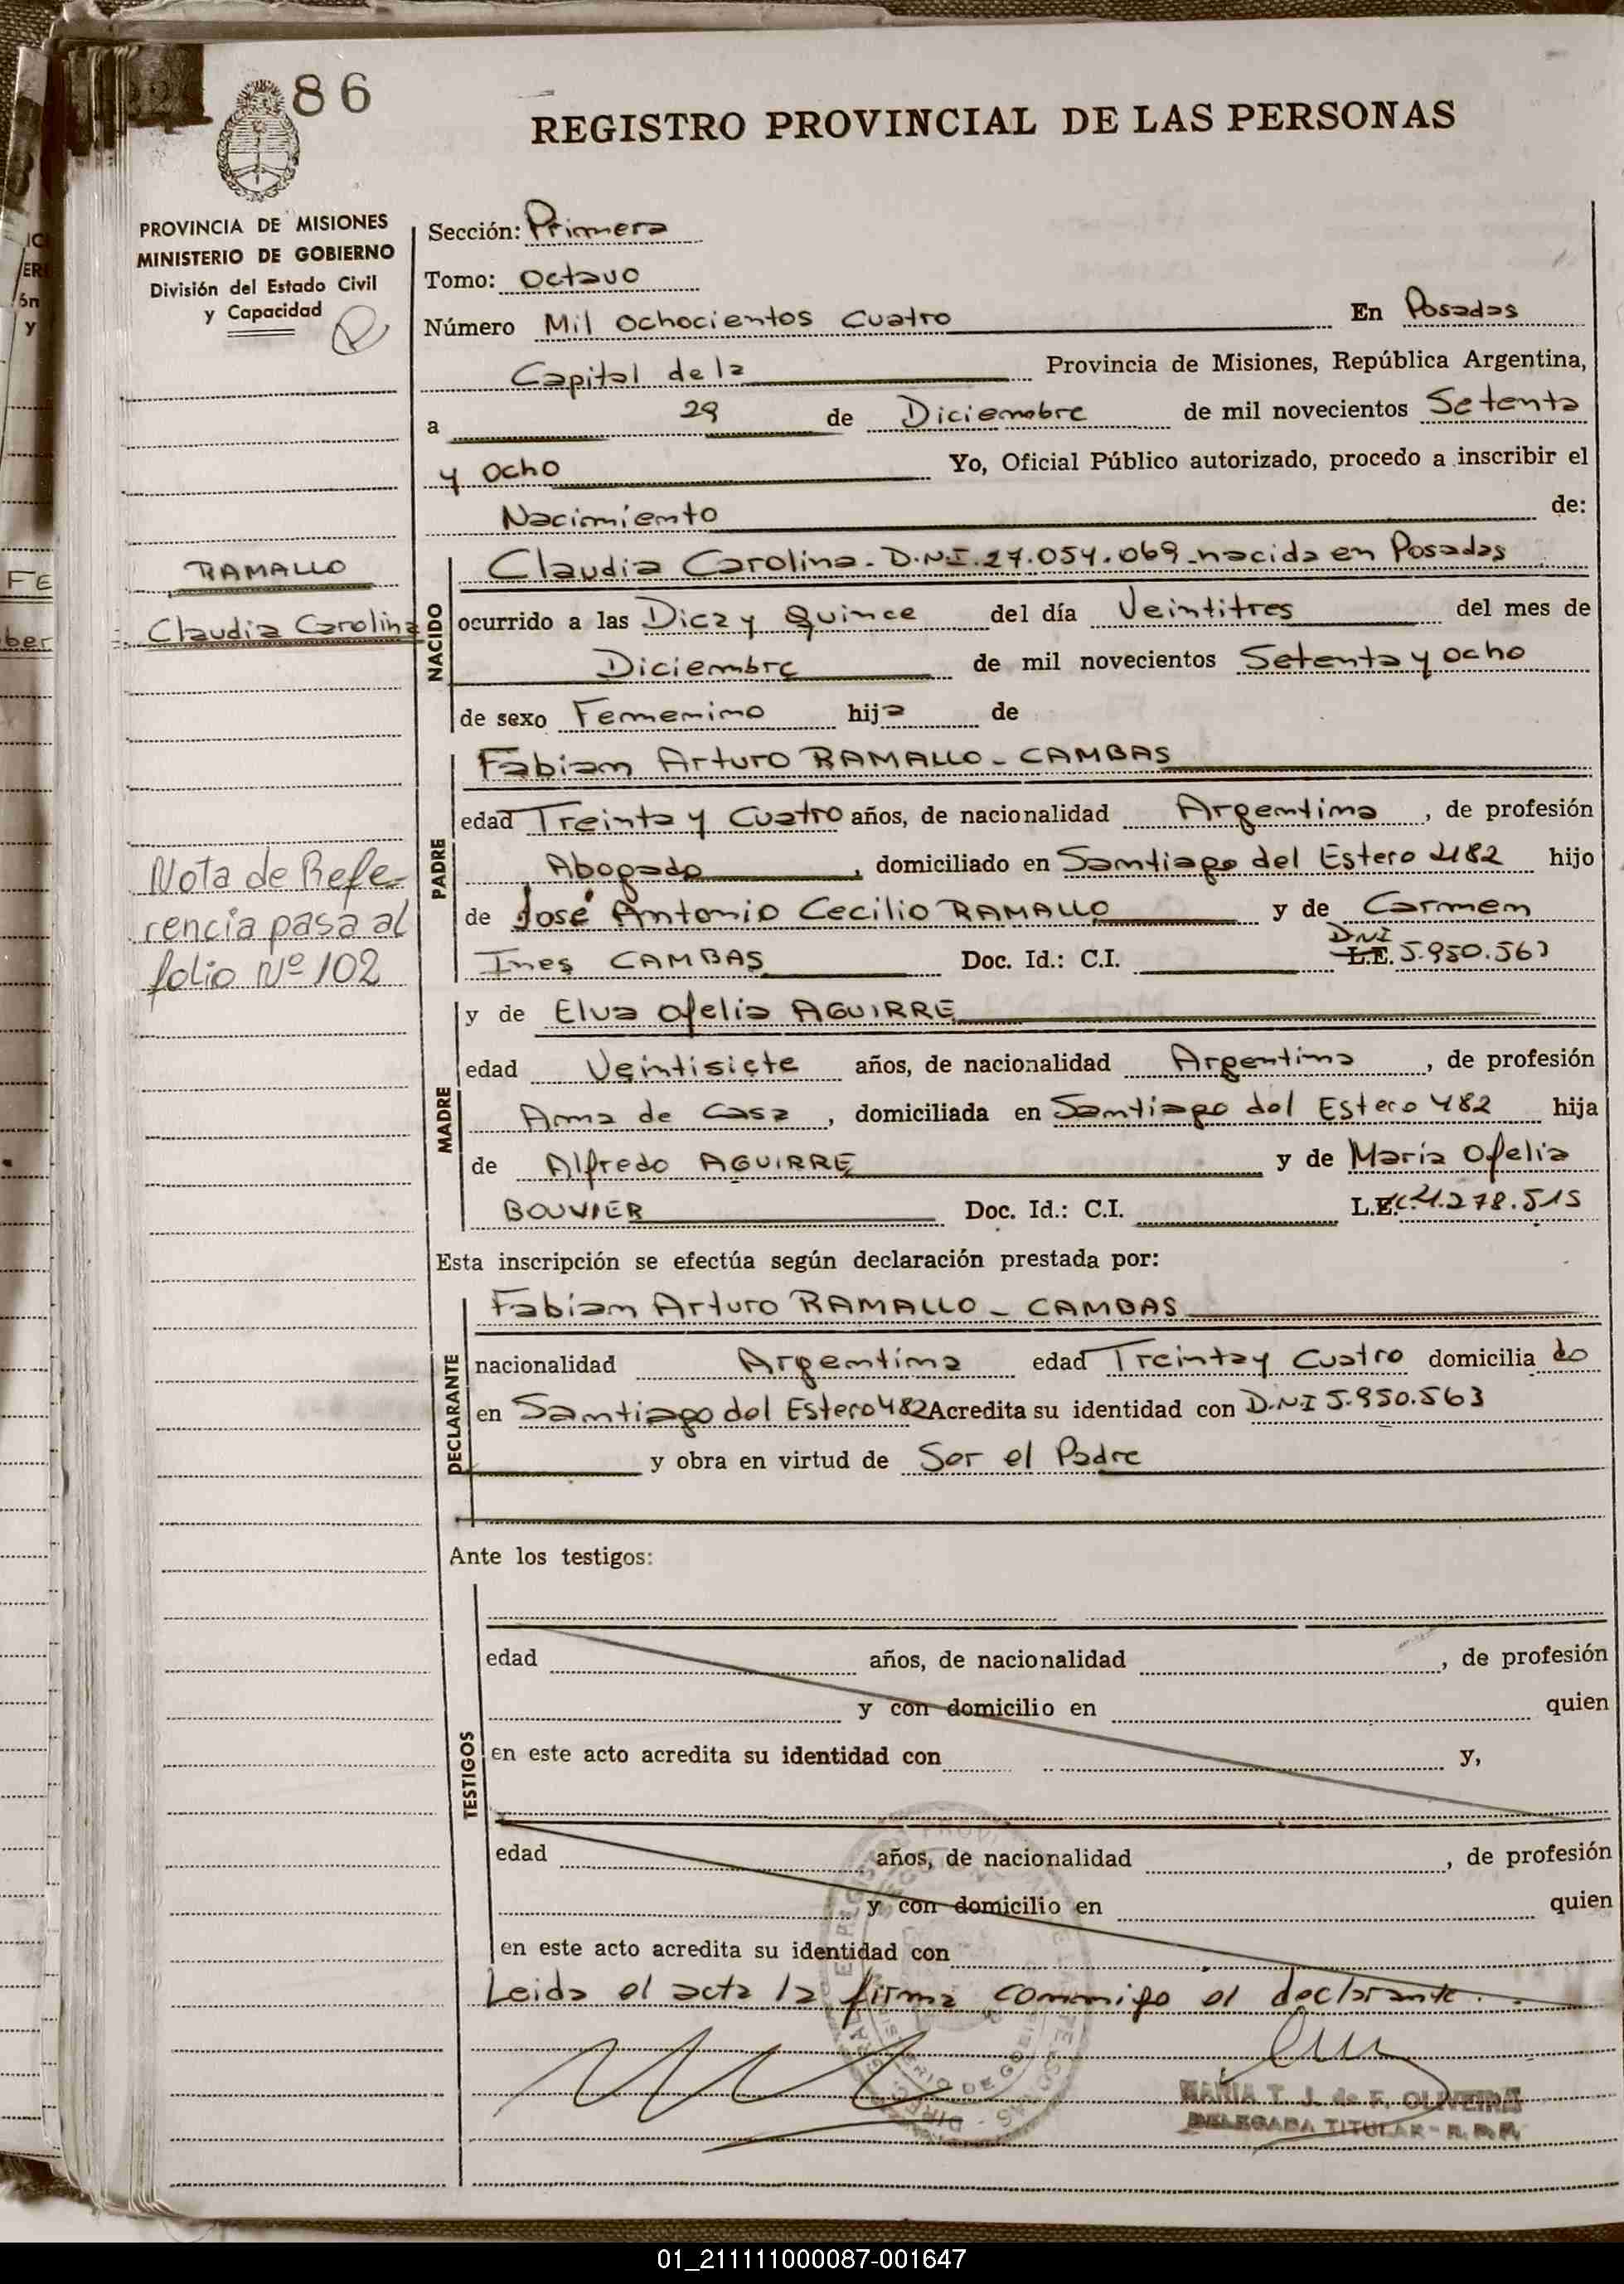 86
REGISTRO PROVINCIAL DE LAS PERSONAS
PROVINCIA DE MISIONES
MINISTERIO DE GOBIERNO
División del Estado Civil
y Capacidad
Sección: Primera
Tomo: Octavo
Número Mil Ochocientos Cuatro En Posadas
Capital de la Provincia de Misiones, República Argentina,
a 29 de Diciembre de mil novecientos Setenta
y Ocho Yo, Oficial Público autorizado, procedo a inscribir el
Nacimiento de:
RAMALLO
Claudia Carolina
NACIDO
Claudia Carolina - D.N.I. 27.054.069 - nacida en Posadas
ocurrido a las Diez y Quince del día Veintitres del mes de
Diciembre de mil novecientos Setenta y ocho
de sexo Femenino hija de
PADRE
Fabian Arturo RAMALLO - CAMBAS
edad Treinta y Cuatro años, de nacionalidad Argentina, de profesión
Abogado, domiciliado en Santiago del Estero 482 hijo
de José Antonio Cecilio RAMALLO y de Carmen
Ines CAMBAS Doc. Id.: C.I. L.E. DNI 5.950.563
Nota de Refe-
rencia pasa al
folio Nº 102
MADRE
y de Elva Ofelia AGUIRRE
edad Veintisiete años, de nacionalidad Argentina, de profesión
Ama de Casa, domiciliada en Santiago del Estero 482 hija
de Alfredo AGUIRRE y de María Ofelia
BOUVIER Doc. Id.: C.I. L.C. 4.278.515
Esta inscripción se efectúa según declaración prestada por:
DECLARANTE
Fabian Arturo RAMALLO - CAMBAS
nacionalidad Argentina edad Treinta y Cuatro domicilia do
en Santiago del Estero 482 Acredita su identidad con D.N.I 5.950.563
y obra en virtud de Ser el Padre
Ante los testigos:
TESTIGOS
edad años, de nacionalidad , de profesión
y con domicilio en quien
en este acto acredita su identidad con y,
edad años, de nacionalidad , de profesión
y con domicilio en quien
en este acto acredita su identidad con
Leida el acta la firma conmigo el declarante.
MARIA T. J. de F. OLIVEIRA
DELEGADA TITULAR - R. P. P.
01_211111000087-001647